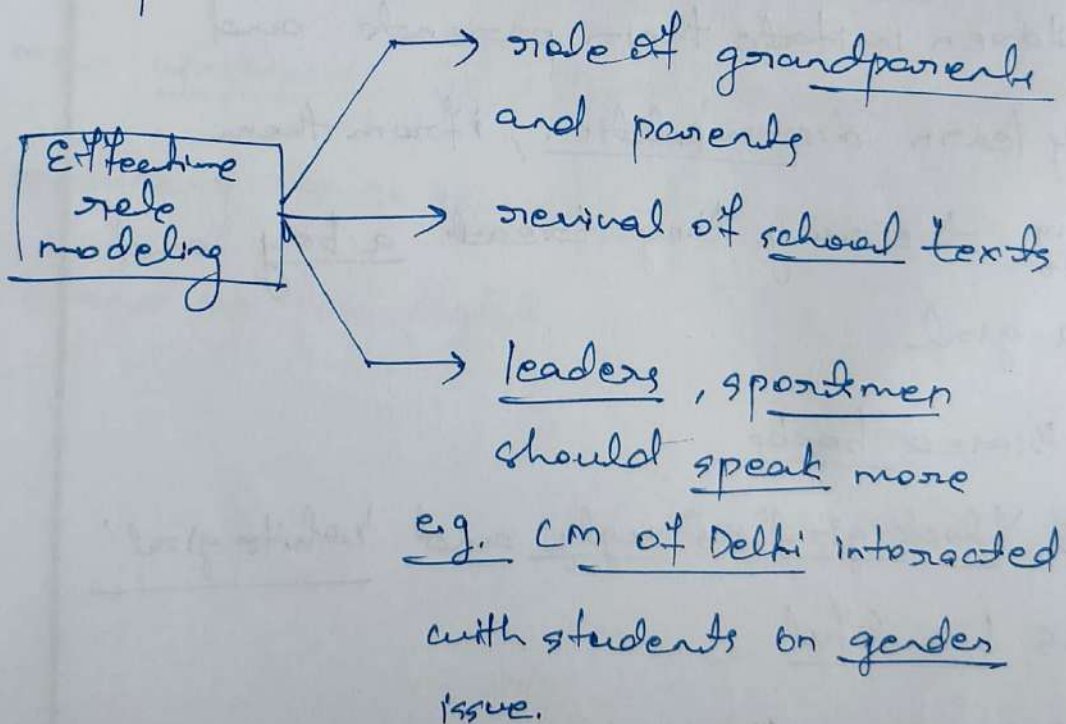 Effective
role
modeling
→ role of grandparents
and parents
→ revival of school texts
→ leaders, sportmen
should speak more
e.g. CM of Delhi interacted
with students on gender
issue.